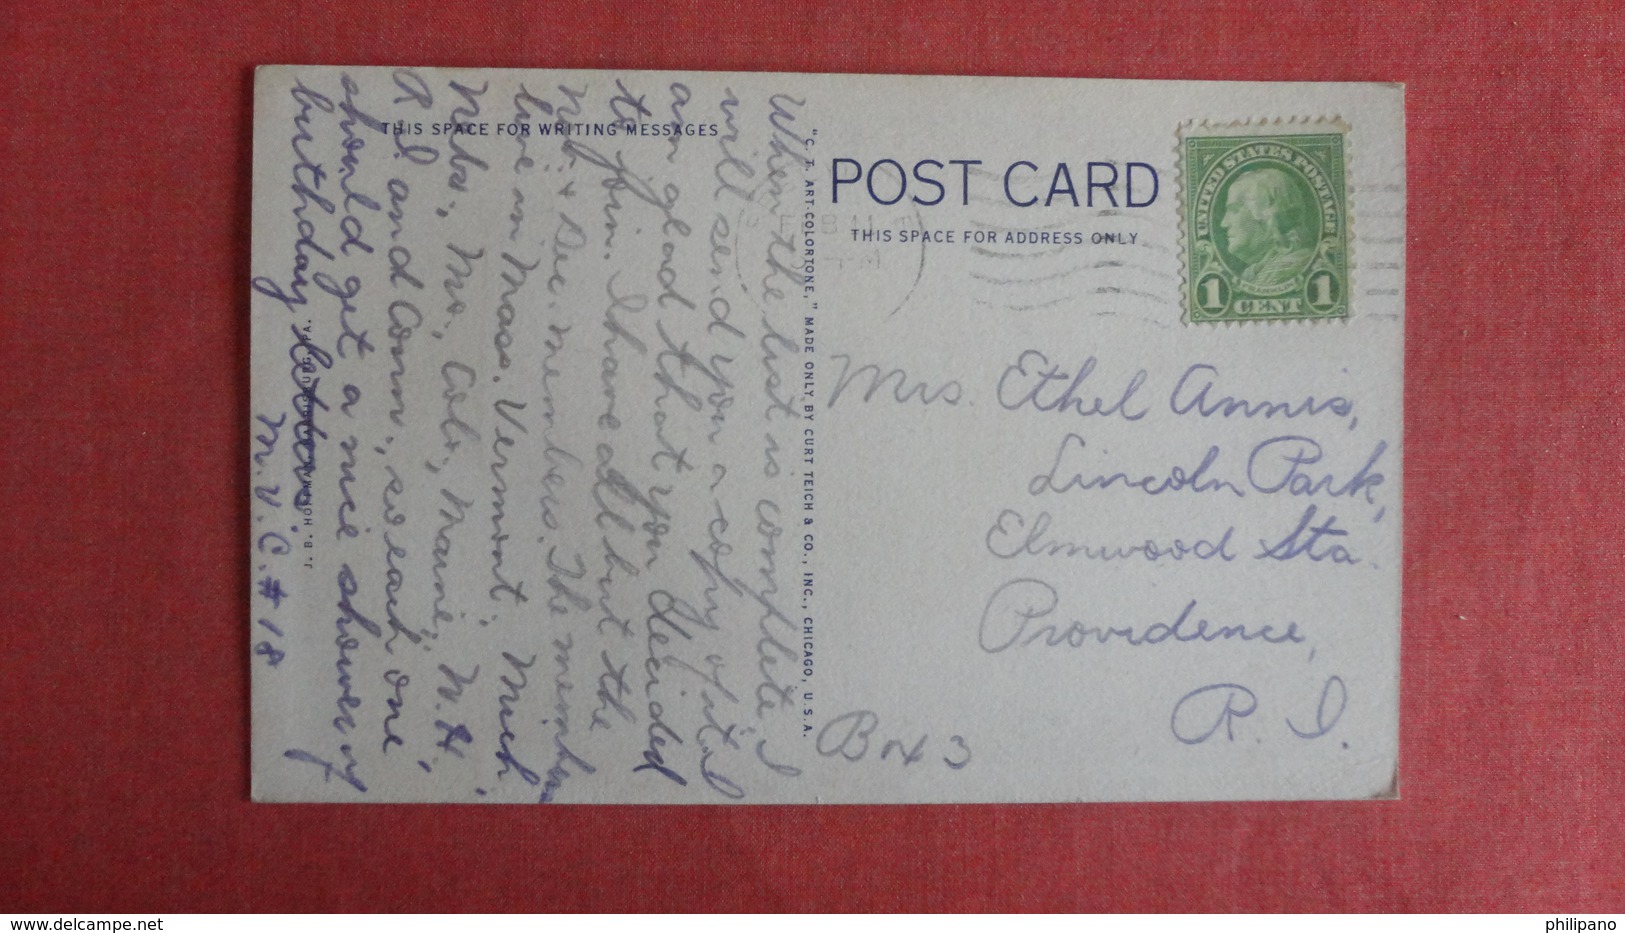 THIS SPACE FOR WRITING MESSAGES
When the list is complete I
will send you a copy of it. I
am glad that you decided
to join. I have all but the
Nov. & Dec. members. The members
live in Mass. Vermont, Mich,
Nebr., Mo., Colo, Maine, N.H,
R.I. and Conn., so each one
should get a nice shower of
birthday letters.
M.V.C. # 18
J. B. HOFFMAN
"C. T. ART-COLORTONE," MADE ONLY BY CURT TEICH & CO., INC., CHICAGO, U.S.A.
POST CARD
THIS SPACE FOR ADDRESS ONLY
FEB 11
PM
UNITED STATES POSTAGE
FRANKLIN
1 CENT 1
Mrs. Ethel Annis,
Lincoln Park,
Elmwood Sta.
Providence,
R. I.
Box 3
www.delcampe.net
philipano